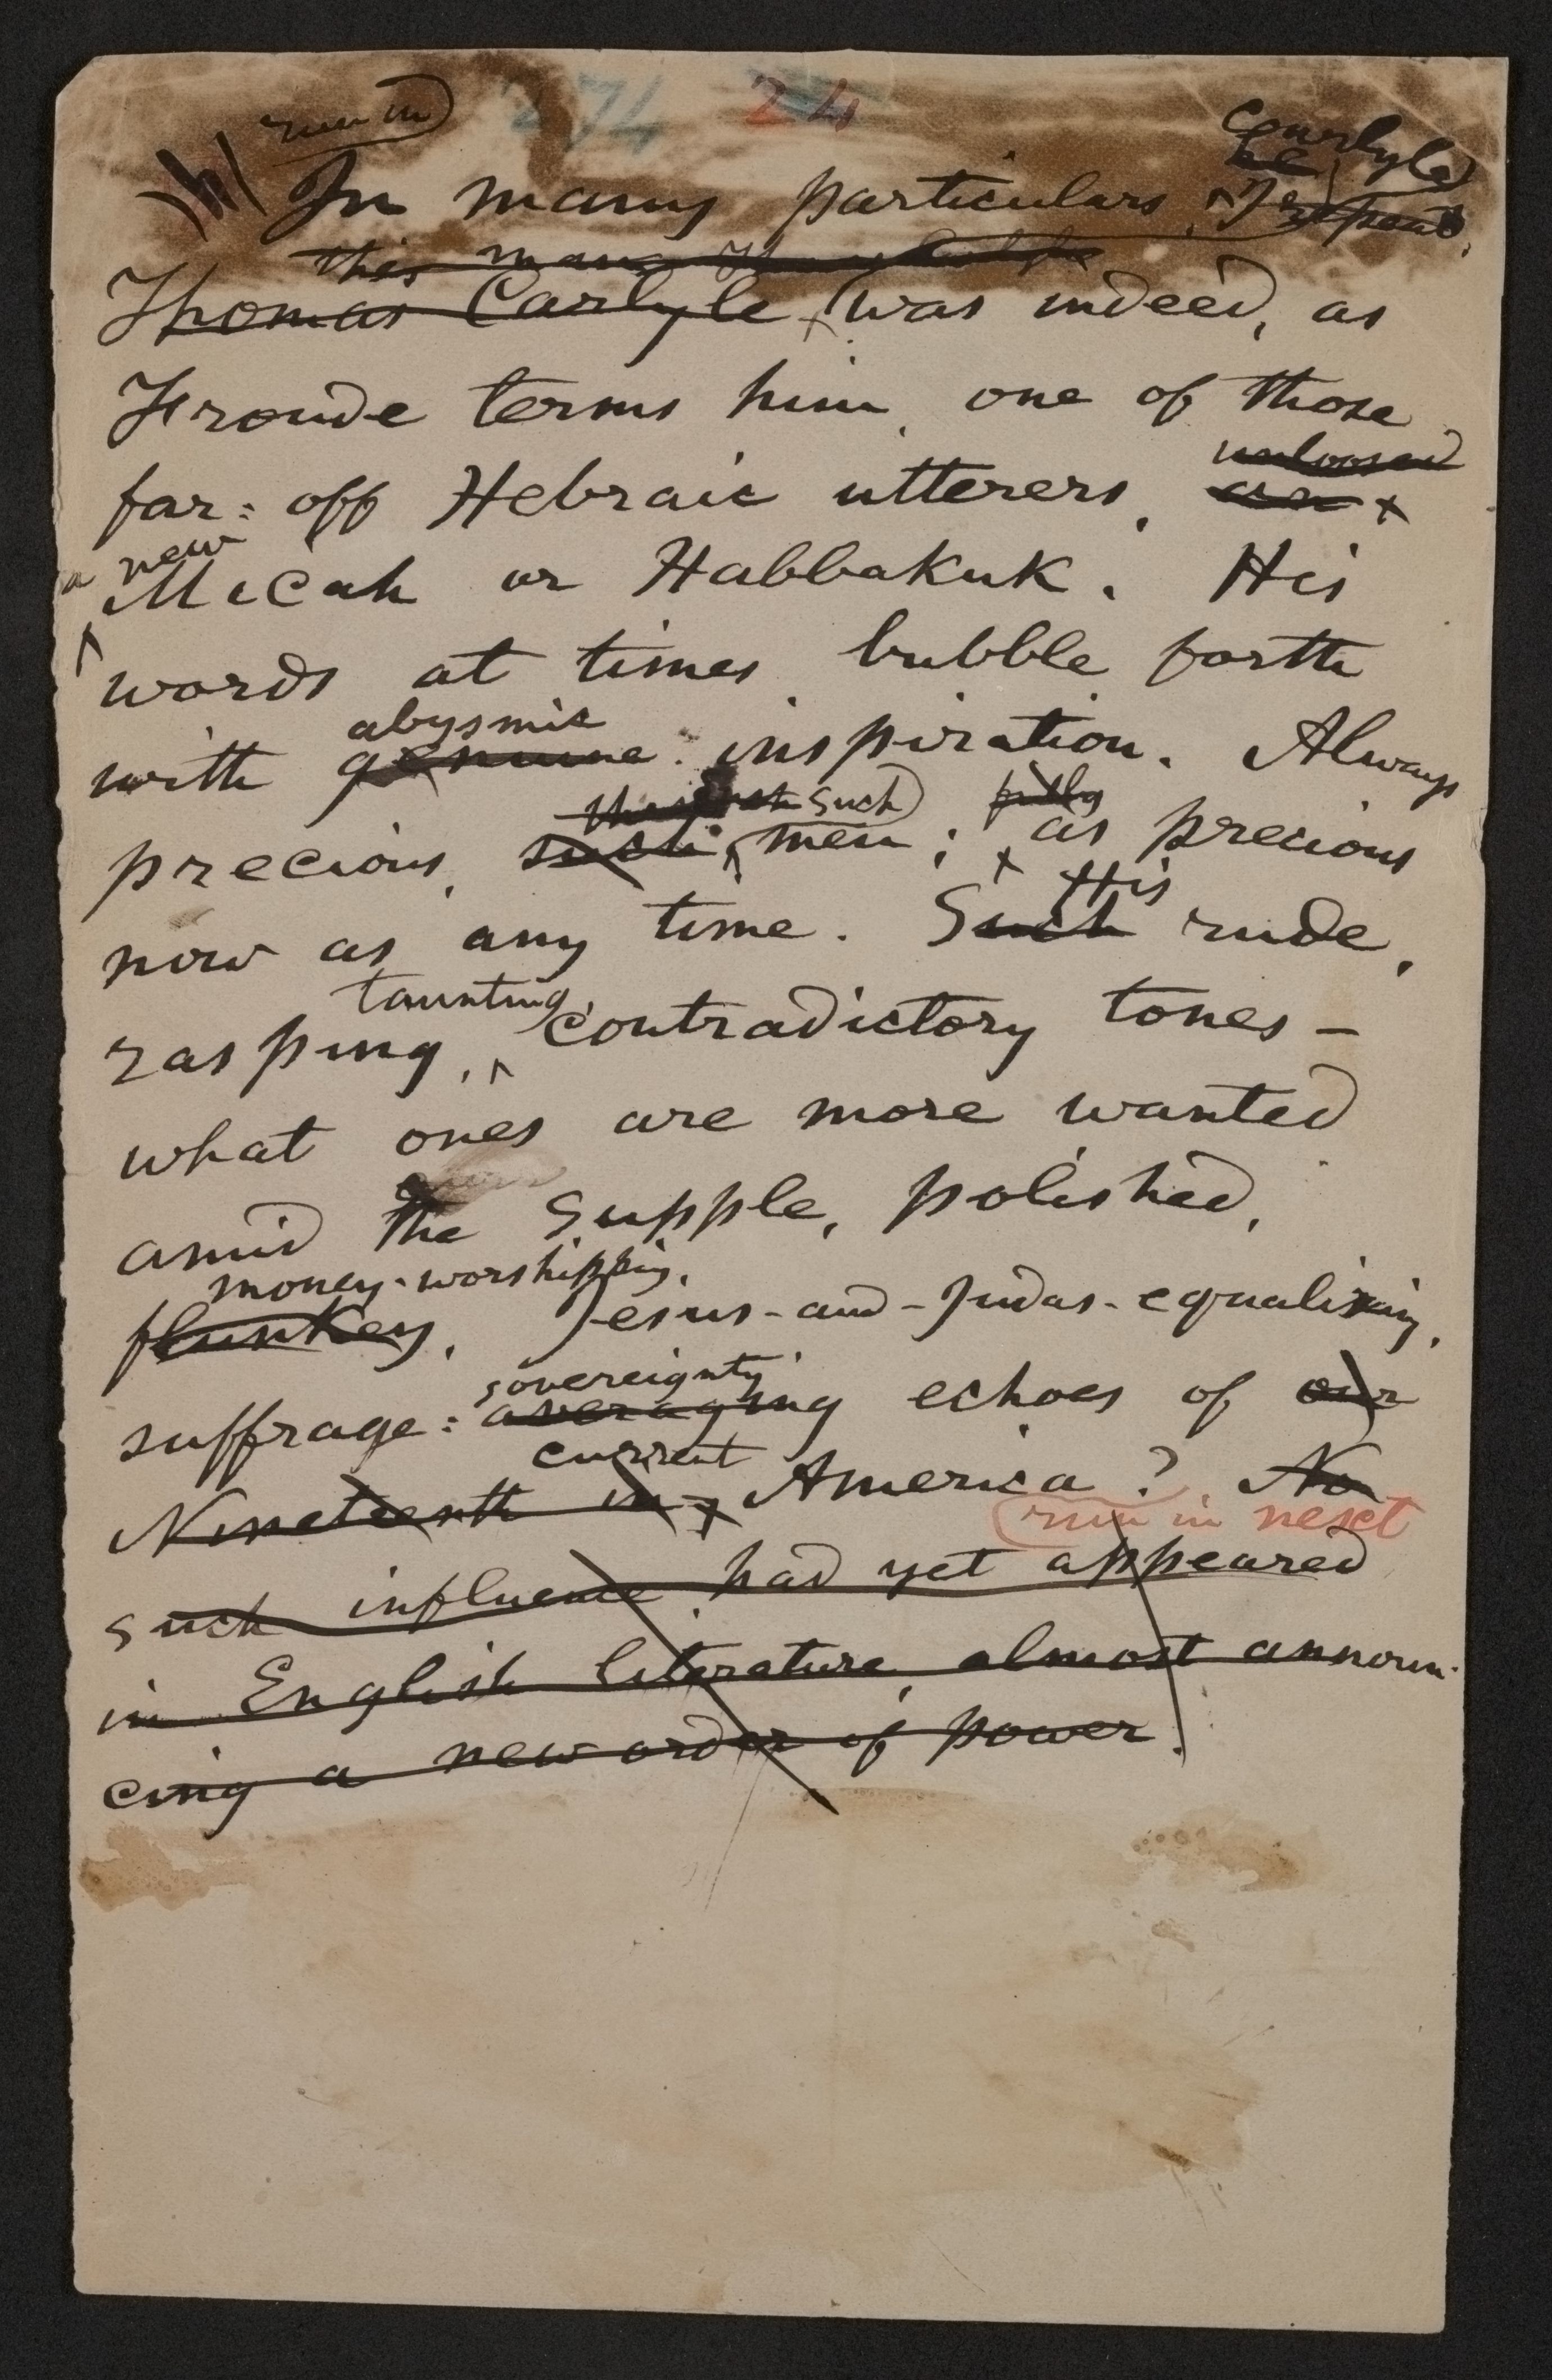 run in
274 24
Carlyle
he
In many particulars
this man
Thomas Carlyle was indeed, as
Froude terms him, one of those
unloosed
far=off Hebraic utterers, an
a new
Micah or Habbakuk. His
words at times bubble forth
abysmic
with genuine inspiration. Always
such fully
precious, such men; as precious
His
now as any time. Such rude,
taunting,
rasping, contradictory tones—
what ones are more wanted
amid the supple, polished,
money-worshipping,
flunkey, Jesus-and-Judas-equalizing,
sovereignty
suffrage=averaging echoes of our
current
Nineteenth in America? No
run in next
such influence had yet appeared
in English literature, almost announ-
cing a new order of power.